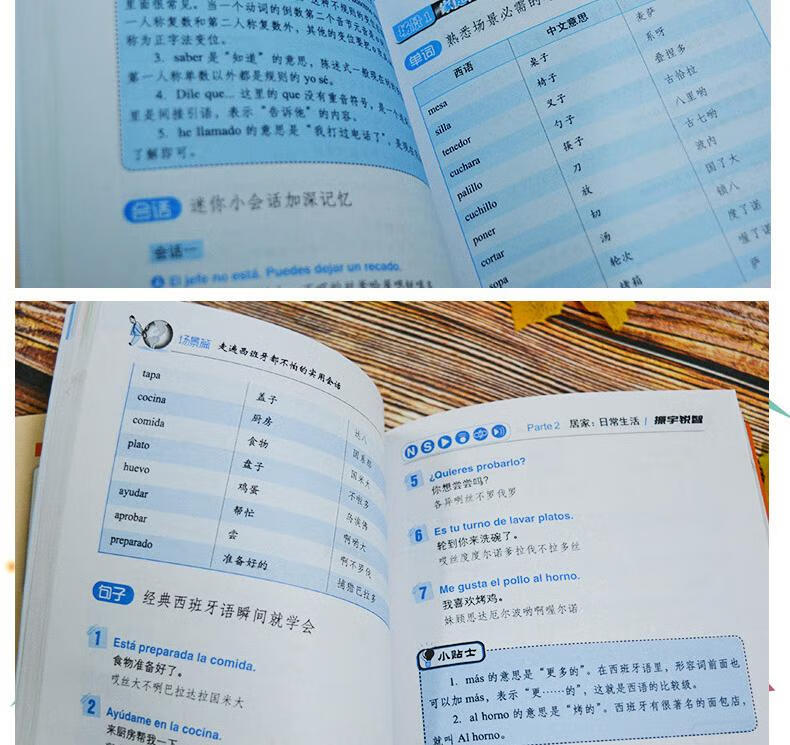 里面很常见。当一个动词的倒数第二个音节元音
一人称复数和第二人称复数外，其他的变位要把
称为正字法变位。
3. saber 是“知道”的意思，陈述式一般现在时
第一人称单数以外都是规则的 yo sé。
4. Dile que... 这里的 que 没有重音符号，是一个
里是间接引语，表示“告诉他”的内容。
5. he llamado 的意思是“我打过电话了”，是现在
了解即可。
会话 迷你小会话加深记忆
会话一
El jefe no está. Puedes dejar un recado.
场景 1
单词 熟悉场景必需的
西语 中文意思
mesa 桌子 麦萨
silla 椅子 系呀
tenedor 叉子 叠捏多
cuchara 勺子 古恰拉
palillo 筷子 八里哟
cuchillo 刀 古七哟
poner 放 波内
cortar 切 国了大
sopa 汤 锁八
轮次 度了诺
烤箱 喔了诺
萨
场景篇 走遍西班牙都不怕的实用会话
tapa 盖子 达八
cocina 厨房
comida 食物 国米大
plato 盘子 不啦多
huevo 鸡蛋
ayudar 帮忙 啊哟大
aprobar 尝 啊不罗伐
preparado 准备好的 捕猎巴拉多
句子 经典西班牙语瞬间就学会
1 Está preparada la comida.
食物准备好了。
哎丝大不咧巴拉达拉国米大
2 Ayúdame en la cocina.
来厨房帮我一下
N S
Parte 2 居家：日常生活 | 振宇锐智
5 ¿Quieres probarlo?
你想尝尝吗？
各异咧丝不罗伐罗
6 Es tu turno de lavar platos.
轮到你来洗碗了。
哎丝度度尔诺爹拉伐不拉多丝
7 Me gusta el pollo al horno.
我喜欢烤鸡。
妹顾思达厄尔波哟啊喔尔诺
小贴士
1. más 的意思是“更多的”。在西班牙语里，形容词前面也
可以加 más，表示“更……的”，这就是西语的比较级。
2. al horno 的意思是“烤的”。西班牙有很著名的面包店，
就叫 Al horno。